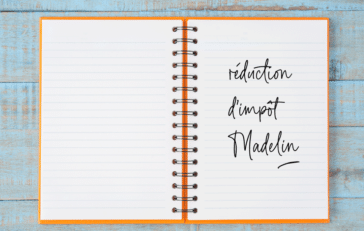 réduction
d'impôt
Madelin